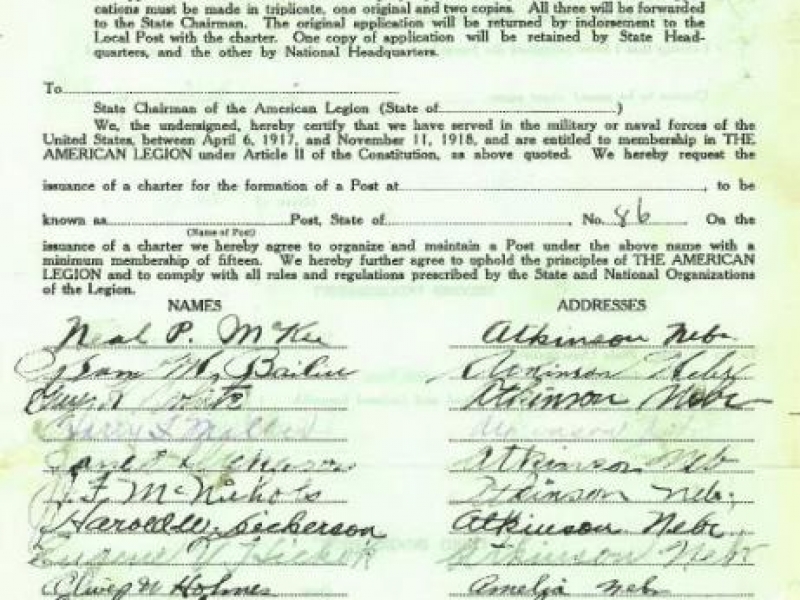 cations must be made in triplicate, one original and two copies. All three will be forwarded
to the State Chairman. The original application will be returned by indorsement to the
Local Post with the charter. One copy of application will be retained by State Head-
quarters, and the other by National Headquarters.
To
State Chairman of the American Legion (State of )
We, the undersigned, hereby certify that we have served in the military or naval forces of the
United States, between April 6, 1917, and November 11, 1918, and are entitled to membership in THE
AMERICAN LEGION under Article II of the Constitution, as above quoted. We hereby request the
issuance of a charter for the formation of a Post at , to be
known as Post, State of , No. 86 On the
(Name of Post)
issuance of a charter we hereby agree to organize and maintain a Post under the above name with a
minimum membership of fifteen. We hereby further agree to uphold the principles of THE AMERICAN
LEGION and to comply with all rules and regulations prescribed by the State and National Organizations
of the Legion.
NAMES ADDRESSES
Neal P. McKee Atkinson Nebr
Atkinson Nebr
Atkinson Nebr
Harry Atkinson
Atkinson Neb
J. F. McNichols Atkinson Nebr.
Harold W. Atkinson Nebr
Eugene Atkinson Nebr
Oliver N Holmes Amelia Nebr